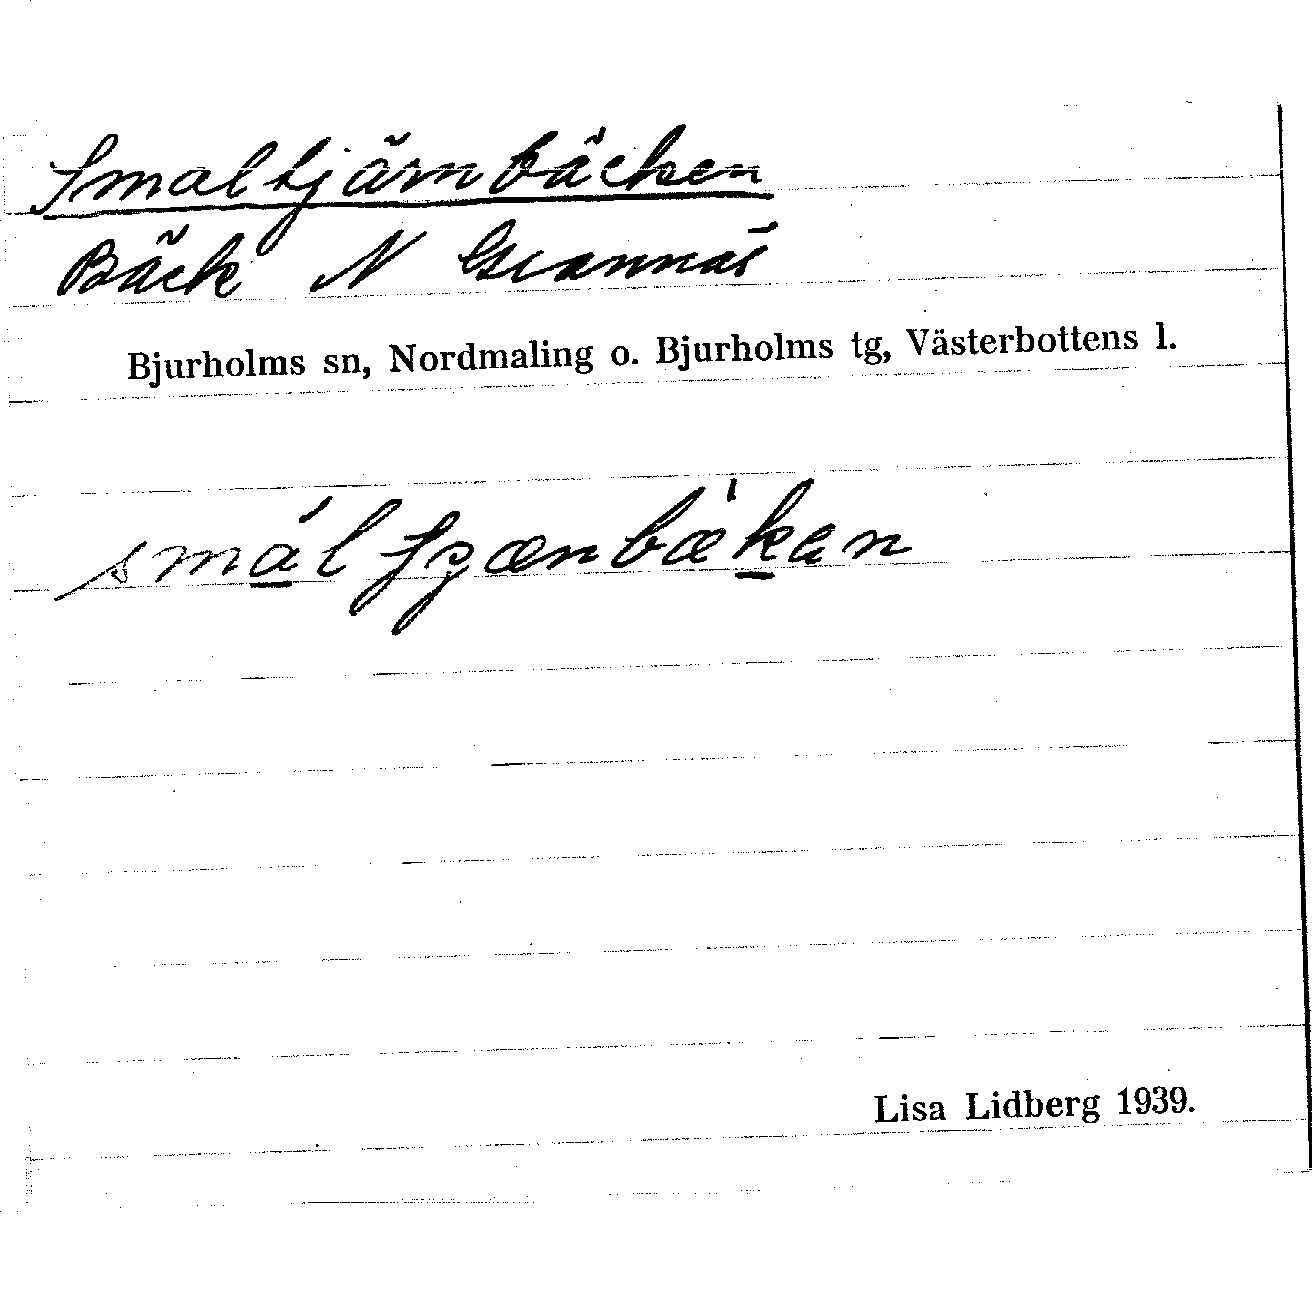 Smaltjärnbäcken
Bäck N Grannäs
Bjurholms sn, Nordmaling o. Bjurholms tg, Västerbottens l.
Lisa Lidberg 1939.